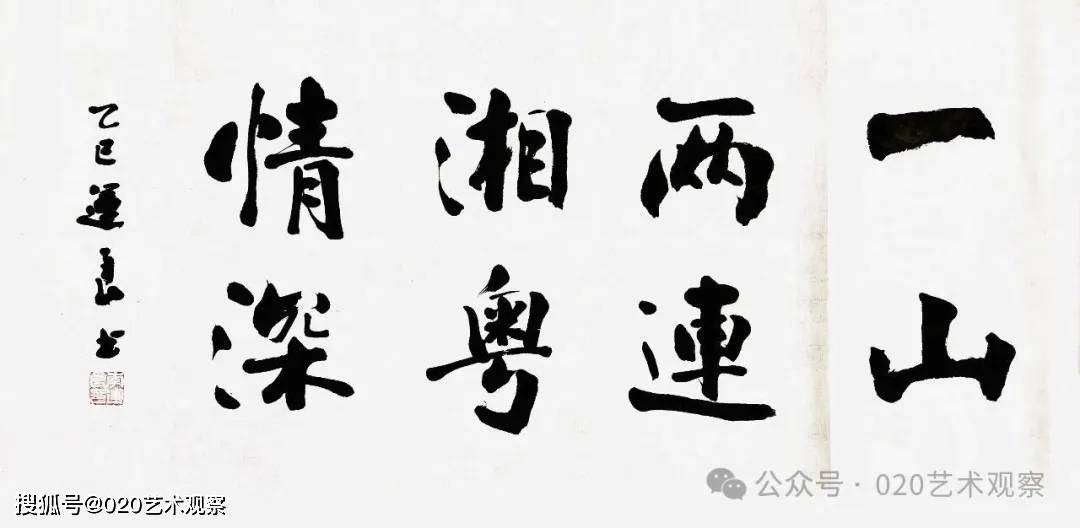 一山
两連
湘粤
情深
乙巳
搜狐号@020艺术观察
公众号·020艺术观察